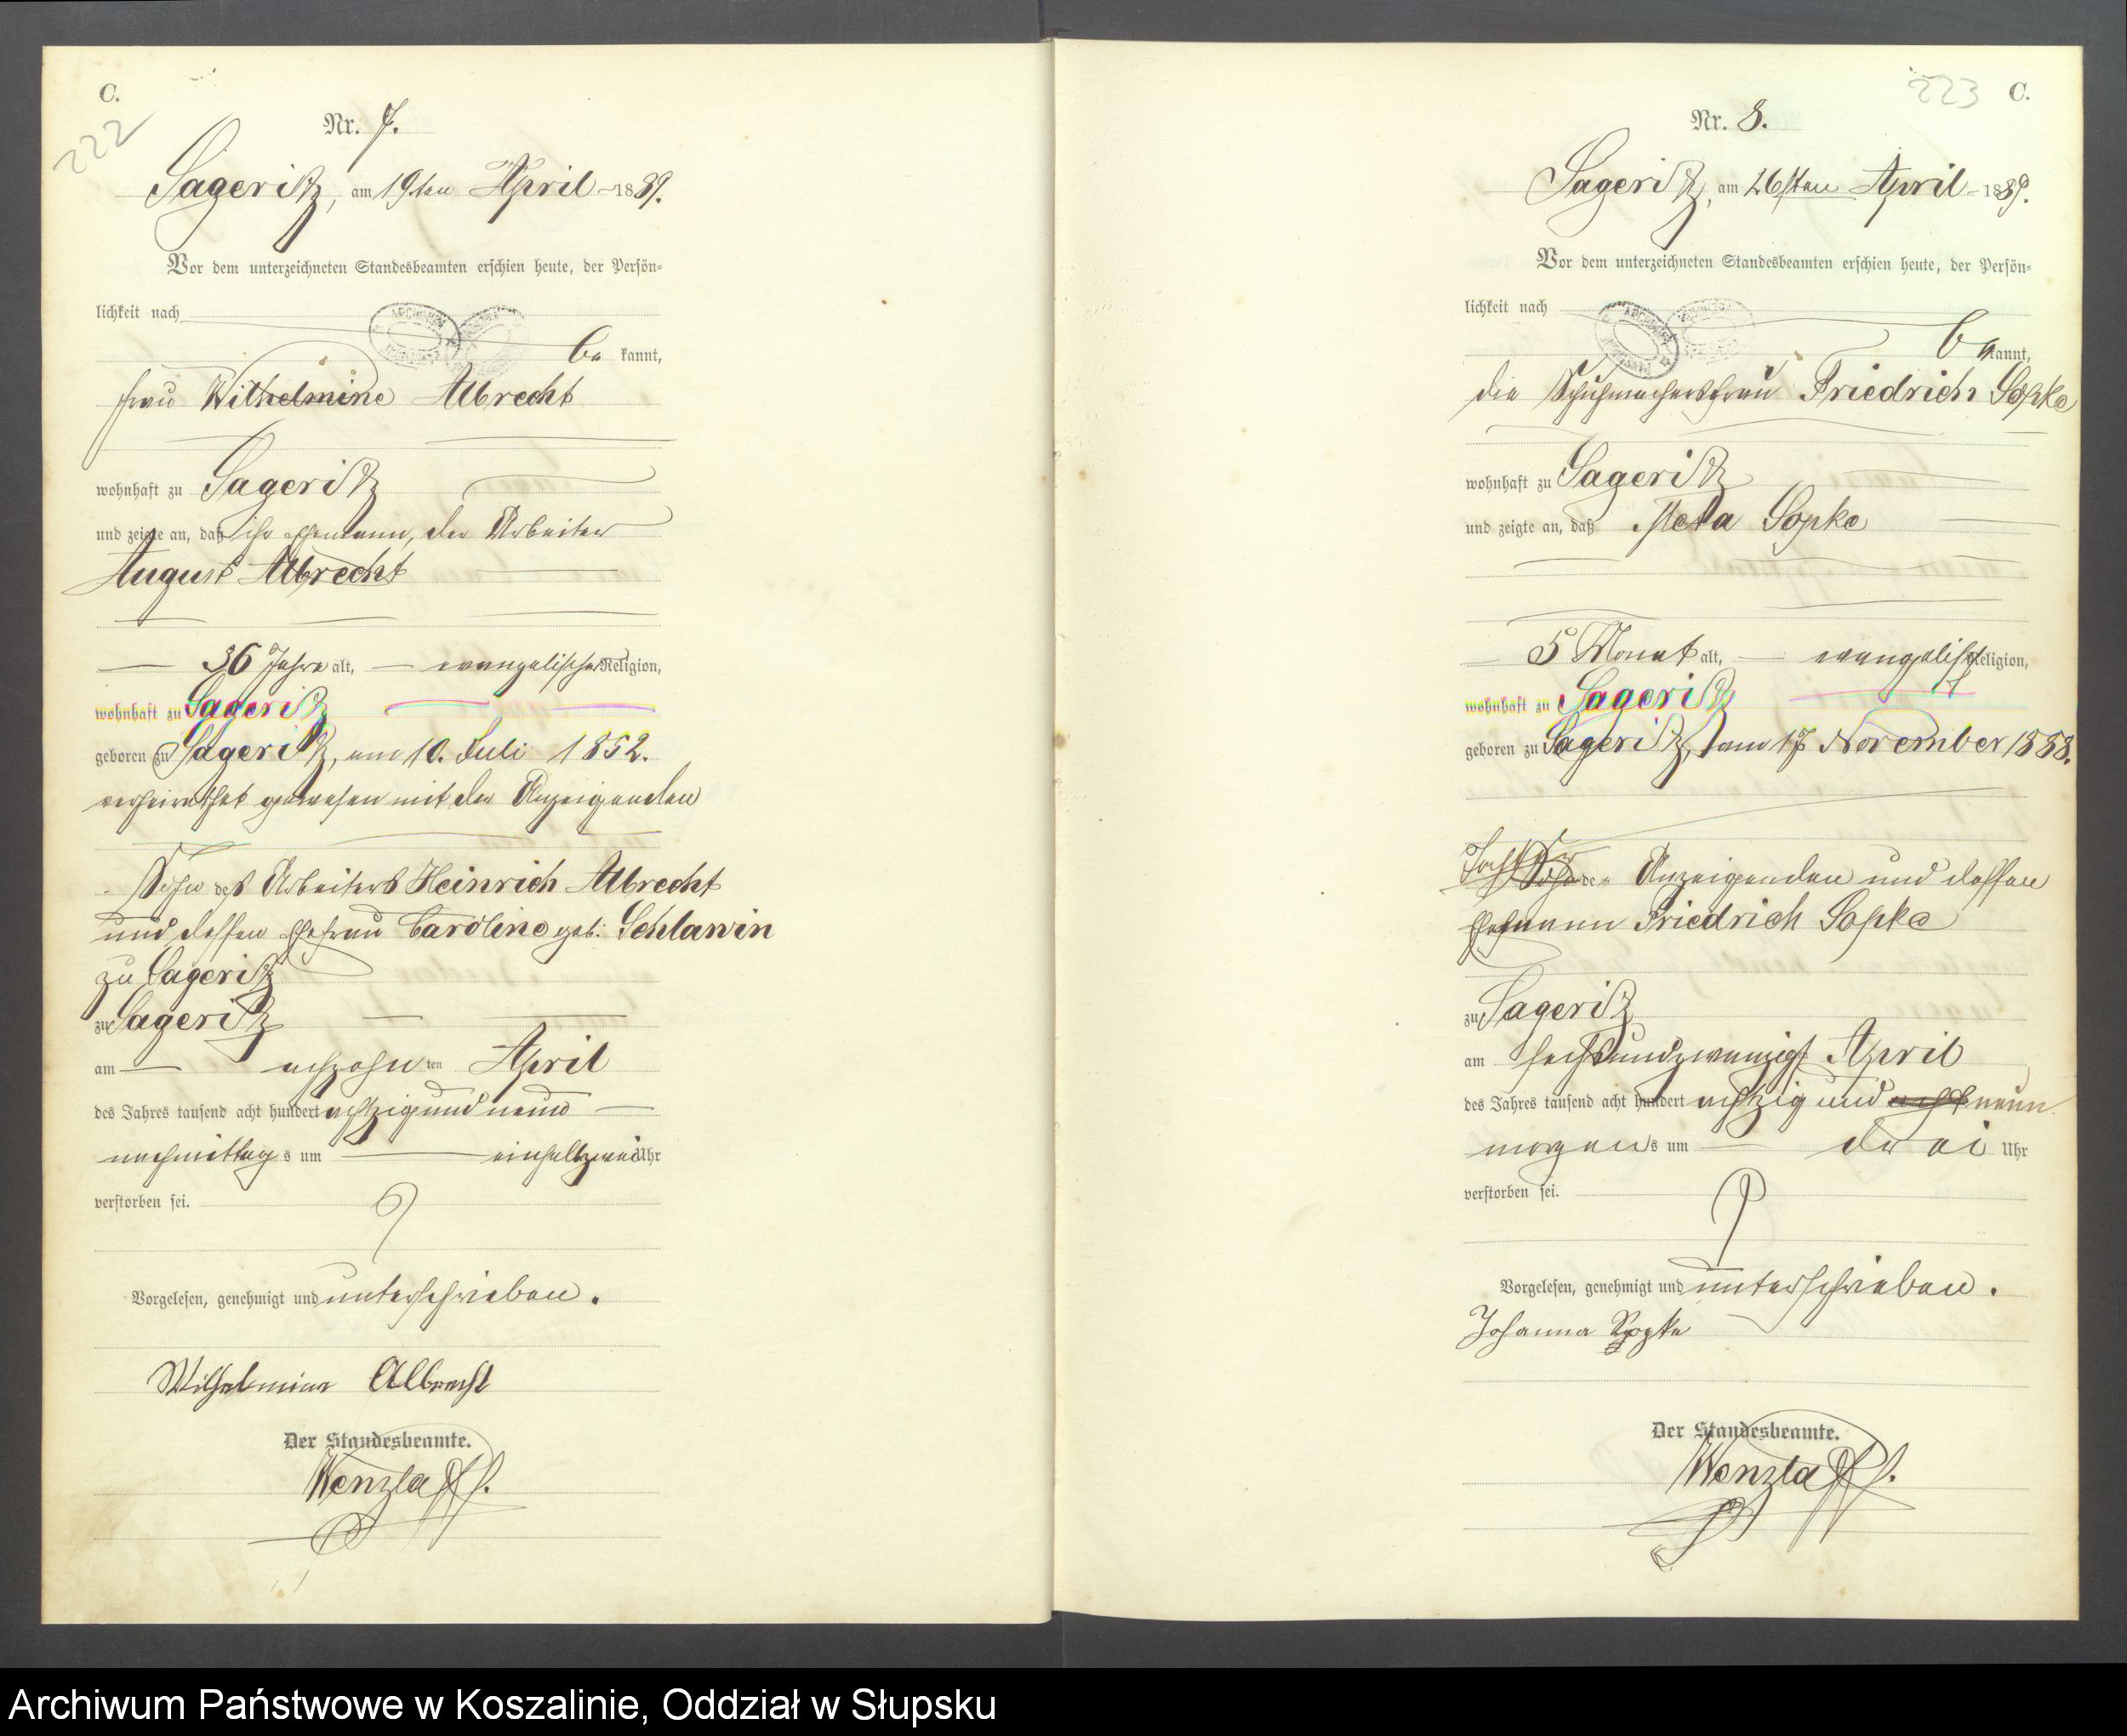 C.
222
Nr. 7.
Sageritz, am 19ten April 1889.
Vor dem unterzeichneten Standesbeamten erschien heute, der Persön-
lichkeit nach
be kannt,
Frau Wilhelmine Albrecht
wohnhaft zu Sageritz
und zeigte an, daß ihr Ehemann, der Arbeiter
August Albrecht
36 Jahre alt, evangelischer Religion,
wohnhaft zu Sageritz
geboren zu Sageritz, am 10. Juli 1852.
verheirathet gewesen mit der Anzeigenden
Sohn des Arbeiters Heinrich Albrecht
und dessen Ehefrau Caroline geb: Schlawin
zu Sageritz
zu Sageritz
am achzehn ten April
des Jahres tausend acht hundert achtzig und neun
nachmittag s um einhalbzwei Uhr
verstorben sei.
Vorgelesen, genehmigt und unterschrieben.
Wilhelmine Albrecht
Der Standesbeamte.
Wenzlaff.
223 C.
Nr. 8.
Sageritz, am 26sten April 1889.
Vor dem unterzeichneten Standesbeamten erschien heute, der Persön-
lichkeit nach
be kannt,
die Schuhmachersfrau Friedrich Sopke
wohnhaft zu Sageritz
und zeigte an, daß Meta Sopke
5 Monat alt, evangelisch Religion,
wohnhaft zu Sageritz
geboren zu Sageritz, am 17 November 1888.
Tochter Sohn der Anzeigenden und dessen
Ehemann Friedrich Sopke
zu Sageritz
am sechsundzwanzigst April
des Jahres tausend acht hundert achtzig und acht neun
morgen s um drei Uhr
verstorben sei.
Vorgelesen, genehmigt und unterschrieben.
Johanna
Der Standesbeamte.
Wenzlaff.
Archiwum Państwowe w Koszalinie, Oddział w Słupsku